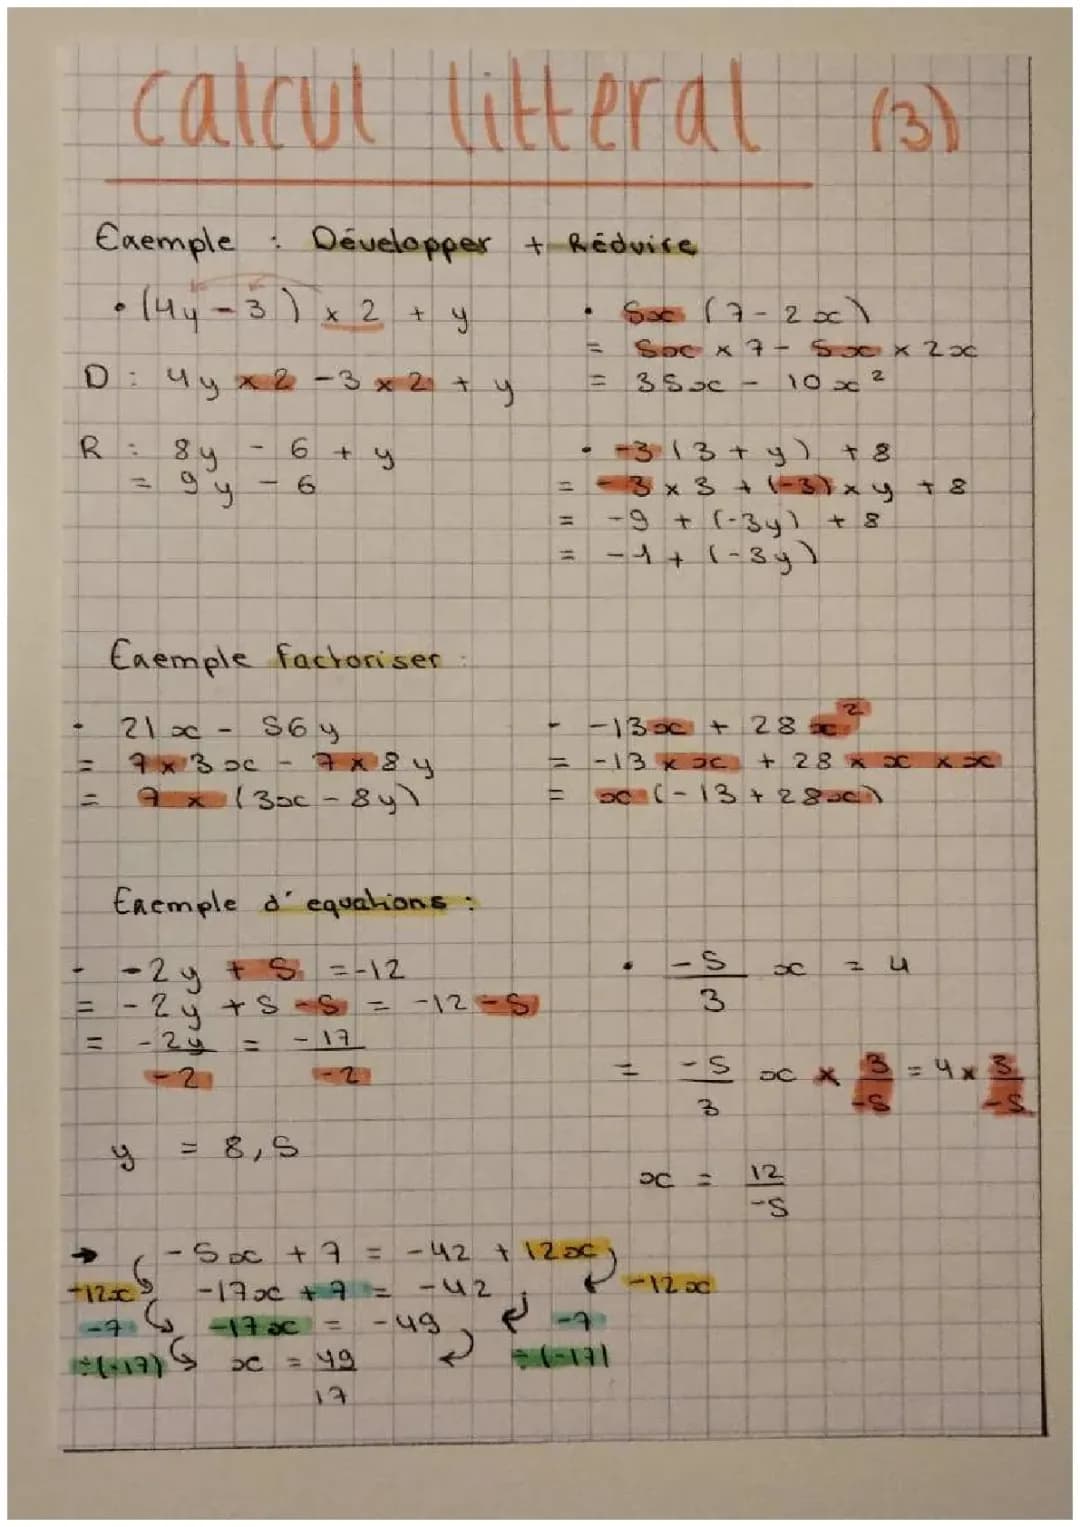 calcul litteral (3)
Exemple : Développer + Réduire
• (4y - 3) x 2 + y
D : 4y x 2 - 3 x 2 + y
R : 8y - 6 + y
= 9y - 6
• 5x (7 - 2x)
= 5x x 7 - 5x x 2x
= 35x - 10x²
• -3 (3 + y) + 8
= -3 x 3 + (-3) x y + 8
= -9 + (-3y) + 8
= -1 + (-3y)
Exemple factoriser :
• 21x - 56y
= 7 x 3x - 7 x 8y
= 7 x (3x - 8y)
• -13x + 28x²
= -13 x x + 28 x x x x
= x (-13 + 28x)
Exemple d'equations :
• -2y + 5 = -12
= -2y + 5 - 5 = -12 - 5
= -2y/-2 = -17/-2
y = 8,5
• -5/3 x = 4
= -5/3 x x 3/-5 = 4 x 3/-5
x = 12/-5
→ -5x + 7 = -42 + 12x
-12x -17x + 7 = -42 -12x
-7 -17x = -49 -7
÷(-17) x = 49/17 ÷(-17)